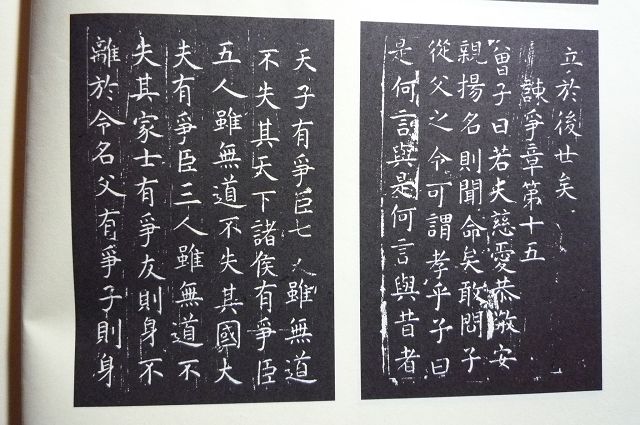 立於後世矣
諫爭章第十五
曾子曰若夫慈愛恭敬安
親揚名則聞命矣敢問子
從父之令可謂孝乎子曰
是何言與是何言與昔者
天子有爭臣七人雖無道
不失其天下諸侯有爭臣
五人雖無道不失其國大
夫有爭臣三人雖無道不
失其家士有爭友則身不
離於令名父有爭子則身